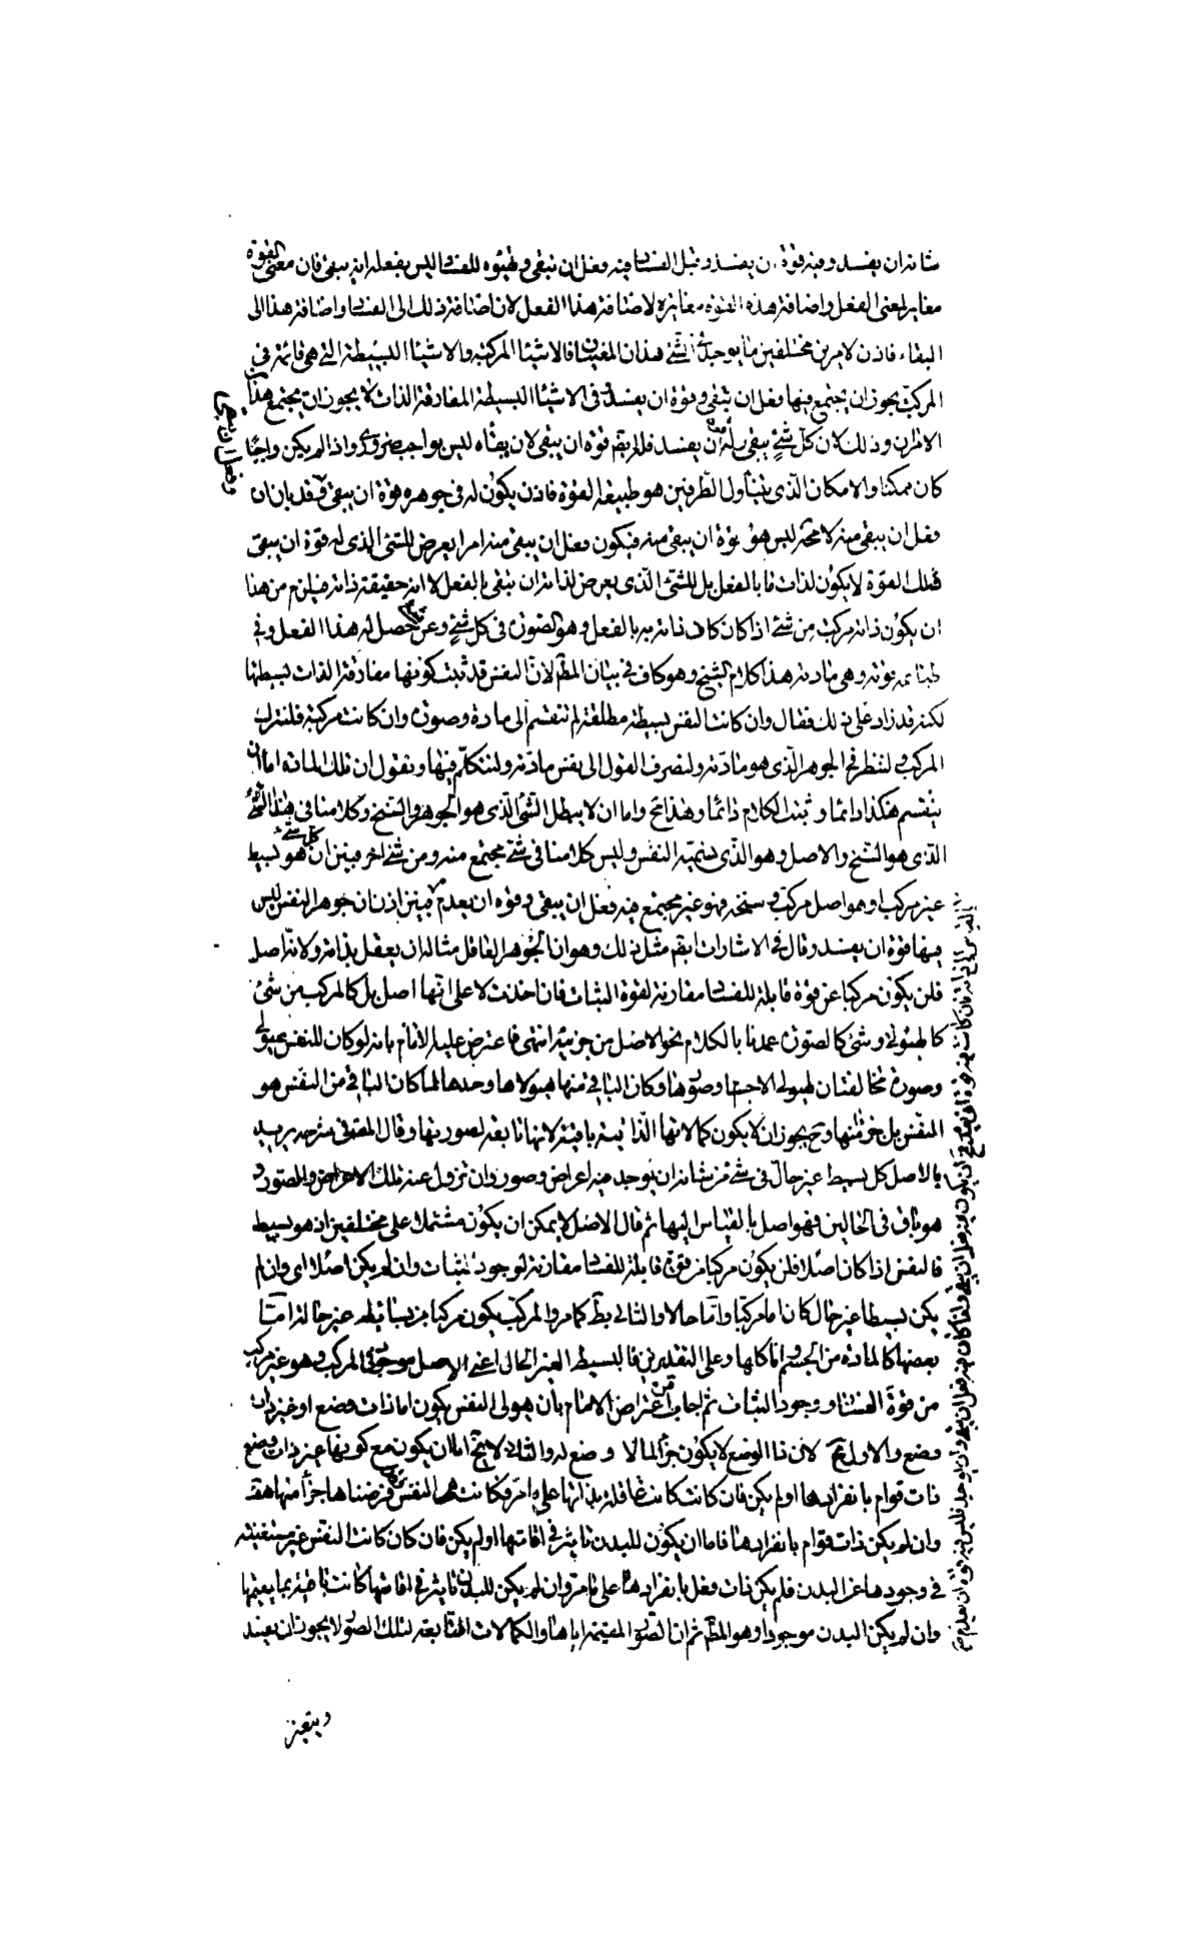 شانه ان يفسد وفيه قوة ان يفسد وقبل الفساد فيه فعل ان يبقى وتهيئوه للفساد ليس بفعله انه يبقى فان معنى القوة
مغاير لمعنى الفعل واضافة هذه القوة مغايرة لاضافة هذا الفعل لان اضافة ذلك الى الفساد واضافة هذا الى
البقاء فاذن لامرين مختلفين ما يوجد في الشئ هذان المعنيان فالاشياء المركبة والاشياء البسيطة التي هي قائمة في
المركب يجوز ان يجتمع فيها فعل ان يبقى وقوة ان يفسد وفى الاشياء البسيطة المفارقة الذات لا يجوز ان يجتمع هذا
الامران وذلك لان كل شئ يبقى وله ان يفسد فله ايضا قوة ان يبقى لان بقاه ليس بواجب ضرورى واذا لم يكن واجبا
كان ممكنا والامكان الذى يتناول الطرفين هو طبيعة القوة فاذن يكون له في جوهره قوة ان يبقى وقد بان ان
فعل ان يبقى منه لا محة ليس هو قوة ان يبقى منه فيكون فعل ان يبقى منه امرا يعرض للشئ الذى له قوة ان يبقى
فتلك القوة لا يكون لذات ما بالفعل بل للشئ الذى يعرض لذاته ان يبقى بالفعل لا انه حقيقة ذاته فيلزم من هذا
ان يكون ذاته مركب من شئ اذا كان كان ذاته به بالفعل وهو الصورة فى كل شئ وعن حصل له هذا الفعل وفي
طباعه قوته وهى مادته هذا كلام الشيخ وهو كاف في بيان المط لان النفس قد ثبت كونها مفارقة الذات بسيطتها
لكنه قد زاد على ذلك فقال وان كانت النفس بسيطة مطلقة لم تنقسم الى مادة وصورة وان كانت مركبة فلنترك
المركب ولننظر فى الجوهر الذى هو مادته ولنصرف القول الى نفس مادته ولنتكلم فيها ونقول ان تلك المادة اما ان
ينقسم هكذا دائما ويثبت الكلام دائما وهذا مح واما ان لا يبطل الشئ الذى هو الجوهر والسنخ وكلامنا فى هذا الشئ
الذى هو السنخ والاصل وهو الذى نسميه النفس وليس كلامنا فى شئ مجتمع منه ومن شئ اخر فبين ان كل شئ هو بسيط
غير مركب او هو اصل مركب وسنخه فهو غير مجتمع فيه فعل ان يبقى وقوة ان يعدم فبين اذن ان جوهر النفس ليس
فيها قوة ان يفسد وقال فى الاشارات ايضا مثل ذلك وهو ان الجوهر العاقل مثاله ان يعقل بذاته ولانه اصل
فلن يكون مركبا عن قوة قابلة للفساد مقارنة لقوة الثبات فان اخذت لا على انها اصل بل كالمركب من شئ
كالهيولى وشئ كالصورة عمدنا بالكلام نحو الاصل من جزئيه انتهى فاعترض عليه الامام بانه لو كان للنفس هيولى
وصورة مخالفتان لهيولى الاجسام وصورها وكان الباقى منها هيولاها وحدها لما كان الباقى من النفس هو
النفس بل جزئها وح يجوز ان لا يكون كمالاتها الذاتية باقية لانها تابعة لصورتها وقال المحقق في شرحه يريد
بالاصل كل بسيط غير حال فى شئ من شانه ان يوجد فيه اعراض وصور وان تزول عنه تلك الاعراض والصور و
هو باق فى الحالين فهو اصل بالقياس اليها ثم قال الاصل لا يمكن ان يكون مشتملا على مختلفين اذ هو بسيط
فالنفس اذا كان اصلا فلن يكون مركبا من قوة قابلة للفساد مقارنة لوجود الثبات وان لم يكن اصلا اى وان لم
يكن بسيطا غير حال كان اما مركبا واما حالا والتالى بط كما مر والمركب يكون مركبا من بسائط غير حالة اما
بعضها كالمادة من الجسم واما كلها وعلى التقديرين فالبسيط الغير الحال اعنى الاصل موجود فى المركب وهو غير مركب
من قوة الفساد ووجود الثبات ثم اجاب عن اعتراض الامام بان هيولى النفس يكون اما ذات وضع او غير ذات
وضع والاول مح لان ذا الوضع لا يكون جزأ لما لا وضع له والثانى لا يخ اما ان يكون مع كونها غير ذات وضع
ذات قوام بانفرادها او لم يكن فان كانت كانت عاقلة بذاتها على ما مر فكانت هى النفس وقد فرضناها جزأ منها هف
وان لم يكن ذات قوام بانفرادها فاما ان يكون للبدن تاثير فى اقامتها او لم يكن فان كان كانت النفس غير مستغنية
فى وجودها عن البدن فلم يكن ذات فعل بانفرادها على ما مر وان لم يكن للبدن تاثير فى اقامتها كانت باقية بما يقيمها
وان لم يكن البدن موجودا وهو المط ثم ان الصورة المقيمة اياها والكمالات التابعة لتلك الصورة لا يجوز ان يفسد
ويتغير
وفعل ان يبقى